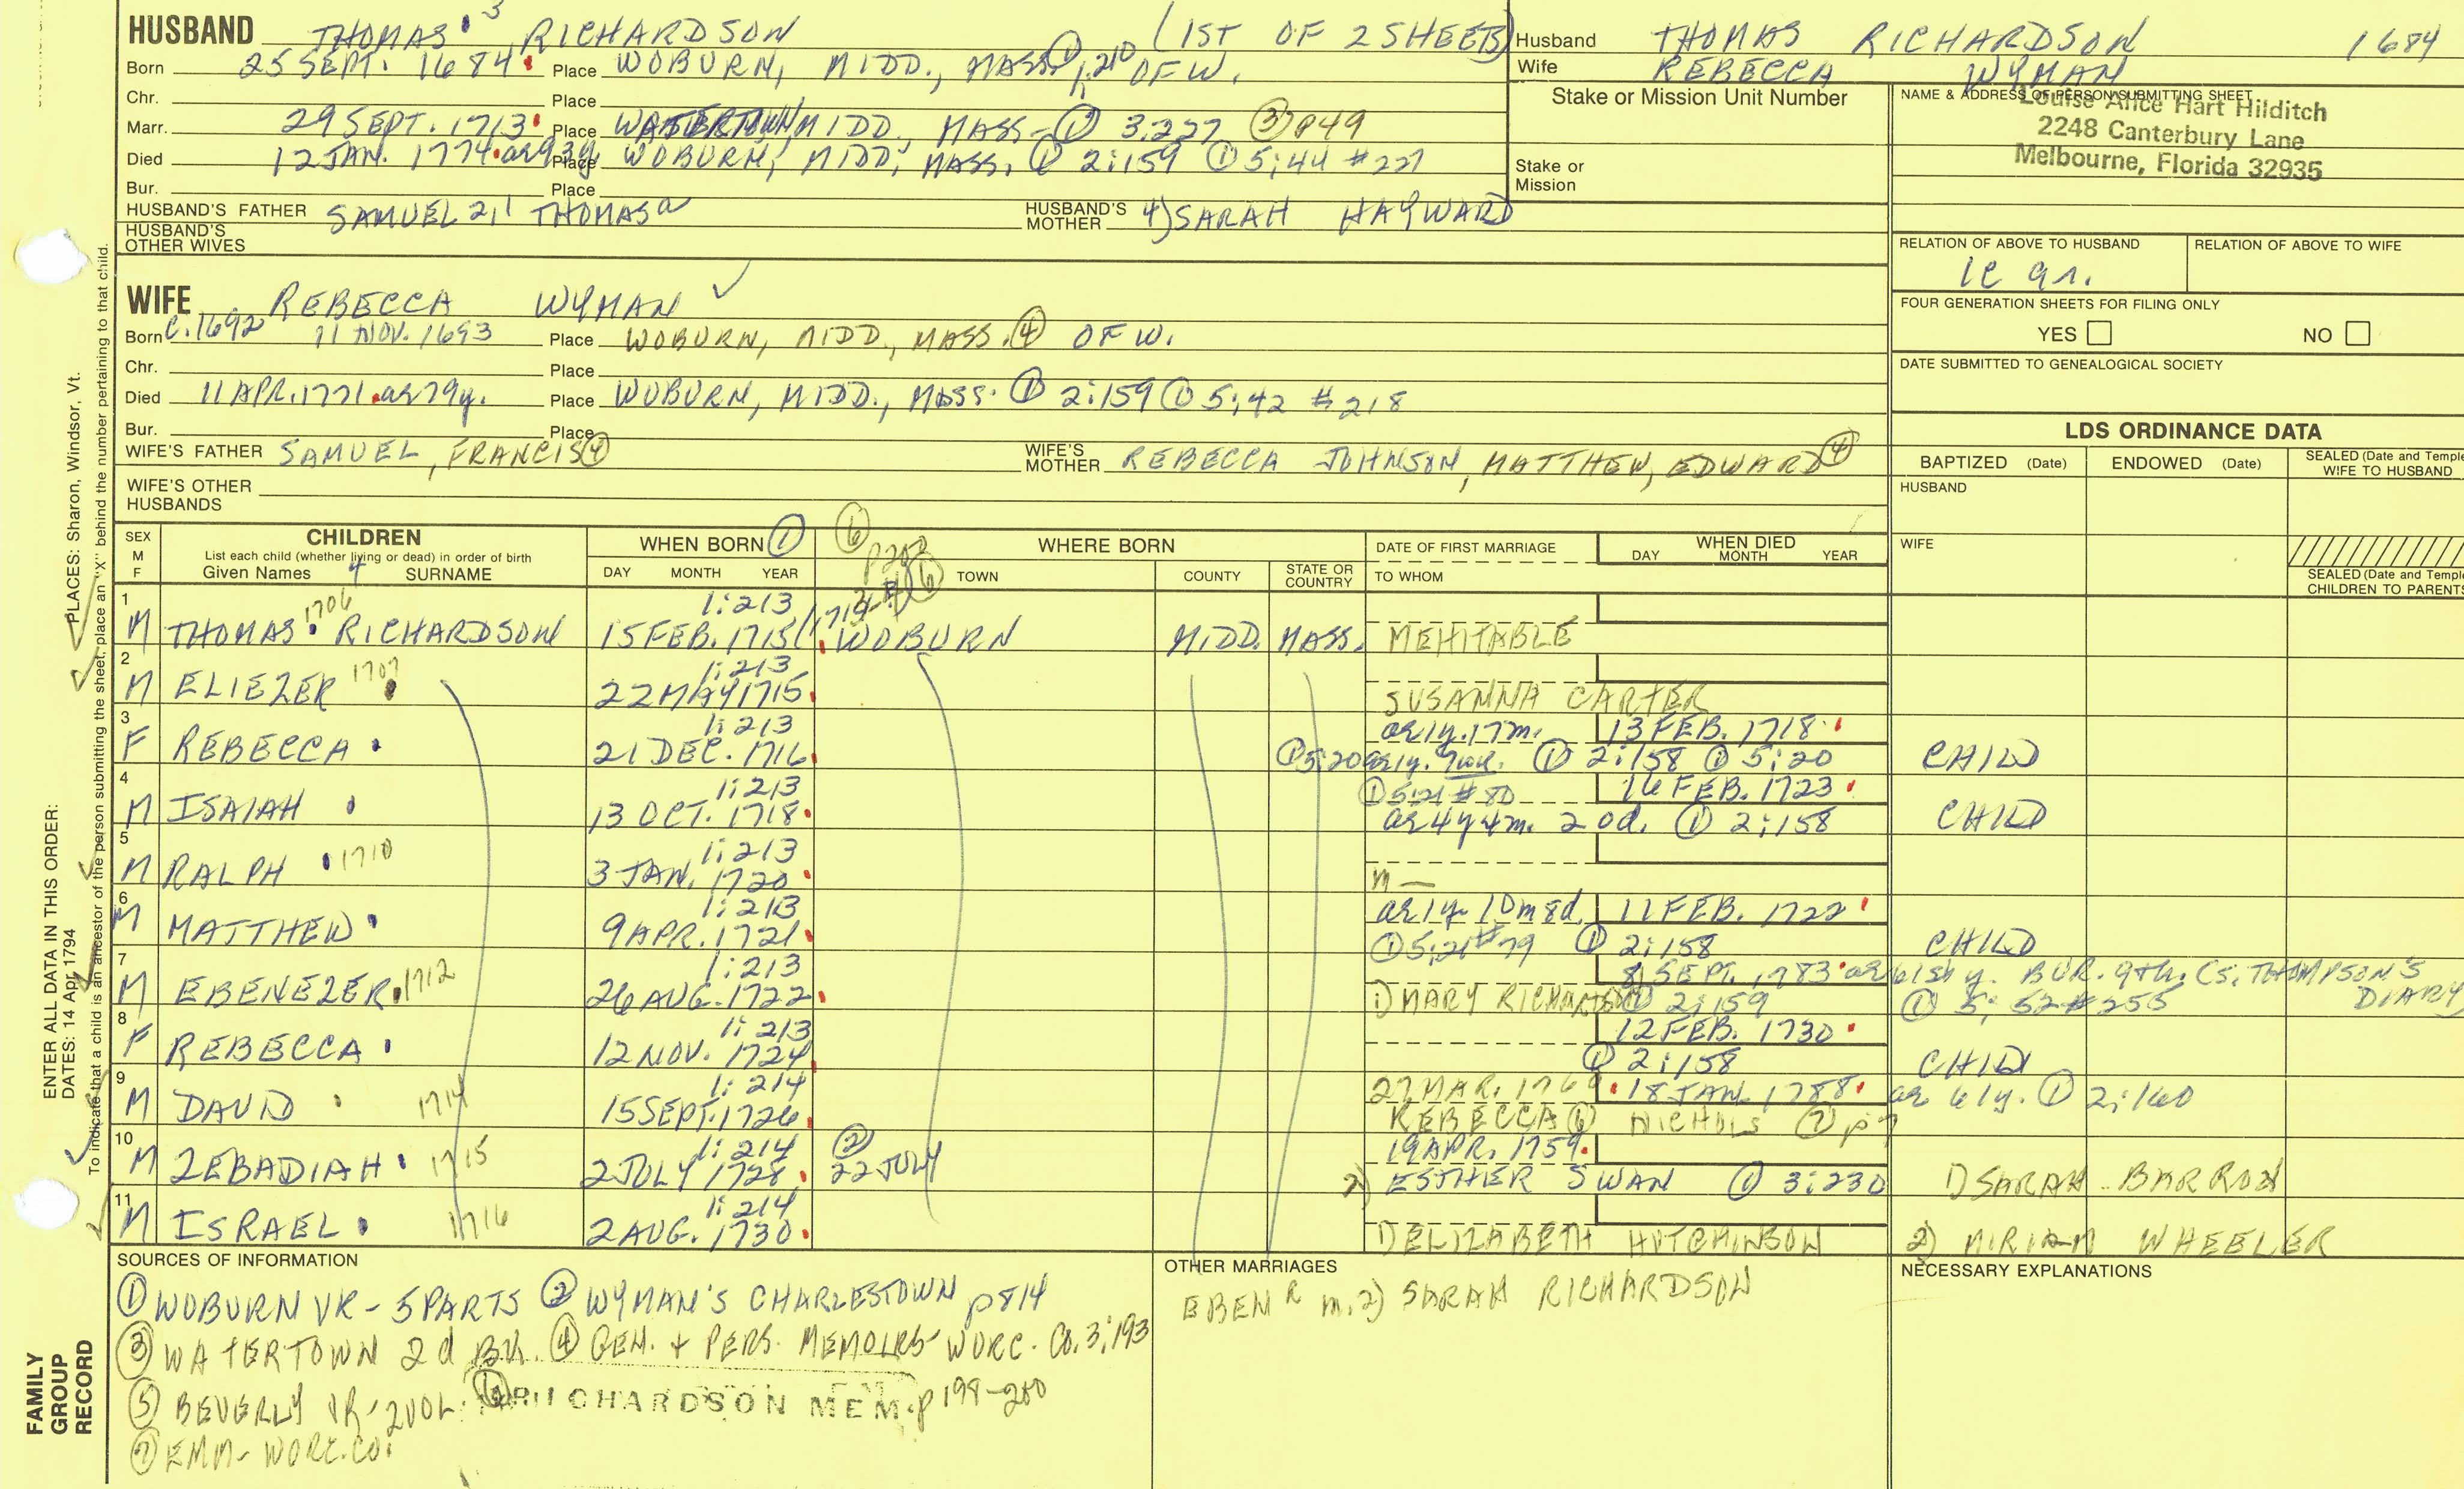 HUSBAND THOMAS 3 RICHARDSON (1ST OF 2 SHEETS)
Born 25 SEPT. 1684 Place WOBURN, MIDD., MASS. ① 1:210 OF W.
Chr. Place
Marr. 29 SEPT. 1713 Place WATERTOWN, MIDD., MASS- ① 3:227 ③ p49
Died 12 JAN. 1774 Place WOBURN, MIDD, MASS. ① 2:159 ① 5:44 #227
Bur. Place
HUSBAND'S FATHER SAMUEL 2, 1 THOMAS a HUSBAND'S MOTHER 4) SARAH HAYWARD
HUSBAND'S OTHER WIVES
Husband THOMAS RICHARDSON 1684
Wife REBECCA WYMAN
Stake or Mission Unit Number
Stake or Mission
NAME & ADDRESS OF PERSON SUBMITTING SHEET
Louise Alice Hart Hilditch
2248 Canterbury Lane
Melbourne, Florida 32935
RELATION OF ABOVE TO HUSBAND RELATION OF ABOVE TO WIFE
FOUR GENERATION SHEETS FOR FILING ONLY
YES NO
DATE SUBMITTED TO GENEALOGICAL SOCIETY
WIFE REBECCA WYMAN ✓
Born C. 1692 11 NOV. 1693 Place WOBURN, MIDD., MASS. ④ OF W.
Chr. Place
Died 11 APR. 1771 ae 79y. Place WOBURN, MIDD., MASS. ① 2:159 ① 5:42 #218
Bur. Place
WIFE'S FATHER SAMUEL, FRANCIS ④ WIFE'S MOTHER REBECCA JOHNSON, MATTHEW, EDWARD ④
WIFE'S OTHER HUSBANDS
LDS ORDINANCE DATA
BAPTIZED (Date) ENDOWED (Date) SEALED (Date and Temple WIFE TO HUSBAND
HUSBAND
WIFE
SEALED (Date and Temple CHILDREN TO PARENTS
SEX M F
CHILDREN
List each child (whether living or dead) in order of birth
Given Names 4 SURNAME
WHEN BORN ① DAY MONTH YEAR
⑥ p200
WHERE BORN TOWN COUNTY STATE OR COUNTRY
DATE OF FIRST MARRIAGE TO WHOM
WHEN DIED DAY MONTH YEAR
1 M THOMAS 1706 RICHARDSON 1:213 15 FEB. 1713/1714 WOBURN MIDD. MASS. MEHITABLE
2 M ELIEZER 1707 1:213 22 MAY 1715 SUSANNA CARTER
3 F REBECCA 1:213 21 DEC. 1716 ae 1y. 17m. 13 FEB. 1718
① 5:20 ① 2:158 ① 5:20 CHILD
4 M ISAIAH 1:213 13 OCT. 1718 ① 5:21 #80 16 FEB. 1723
ae 4y 4m. 20d. ① 2:158 CHILD
5 M RALPH 1710 1:213 3 JAN. 1720 m —
6 M MATTHEW 1:213 9 APR. 1721 ae 1y. 10m 8d. 11 FEB. 1722
① 5:21 #79 ① 2:158 CHILD
7 M EBENEZER 1712 1:213 26 AUG. 1722 8 SEPT. 1783 BUR. 9th. (S. THOMPSON'S DIARY
1) MARY RICHARDSON ① 2:159 ① 5:52 #255
8 F REBECCA 1:213 12 NOV. 1724 12 FEB. 1730
① 2:158 CHILD
9 M DAVID 1714 1:214 15 SEPT. 1726 27 MAR. 1760 18 JAN. 1788 ae 61y. ① 2:160
REBECCA ⑥ NICHOLS ⑦ p7
10 M ZEBADIAH 1715 1:214 2 JULY 1728 ② 22 JULY 19 APR. 1759
2) ESTHER SWAN ① 3:230 1) SARAH BARRON
11 M ISRAEL 1716 1:214 2 AUG. 1730 1) ELIZABETH HUTCHINSON 2) MIRIAM WHEELER
SOURCES OF INFORMATION
① WOBURN VR - 5 PARTS ② WYMAN'S CHARLESTOWN p814
③ WATERTOWN 2d BK. ④ GEN. + PERS. MEMOIRS - WORC. CO. 3:193
⑤ BEVERLY VR - 2 VOL. ⑥ RICHARDSON MEM. p 199-200
⑦ EMM - WORC. CO.
OTHER MARRIAGES
EBEN R m. 2) SARAH RICHARDSON
NECESSARY EXPLANATIONS
ENTER ALL DATA IN THIS ORDER:
DATES: 14 Apr 1794 PLACES: Sharon, Windsor, Vt.
To indicate that a child is an ancestor of the person submitting the sheet, place an "X" behind the number pertaining to that child.
FAMILY GROUP RECORD